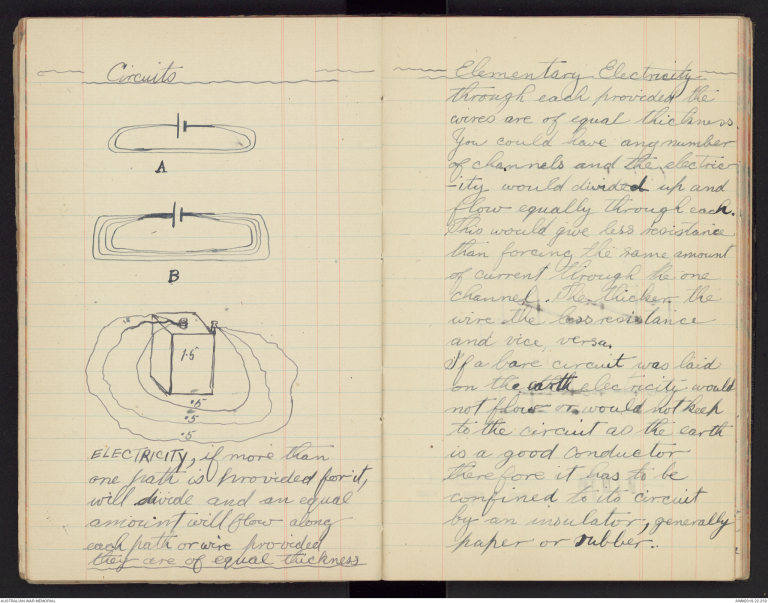 Circuits
A
B
1.5
.5
.5
.5
ELECTRICITY, if more than
one path is provided for it,
will divide and an equal
amount will flow along
each path or wire provided
they are of equal thickness
Elementary Electricity
through each provided the
wires are of equal thickness.
You could have any number
of channels and the electric
-ity would divided up and
flow equally through each.
This would give less resistance
than forcing the same amount
of current through the one
channel. The thicker the
wire the less resistance
and vice versa.
If a bare circuit was laid
on the earth electricity would
not flow or would not keep
to the circuit as the earth
is a good conductor
therefore it has to be
confined to its circuit
by an insulator, generally
paper or rubber.
AUSTRALIAN WAR MEMORIAL